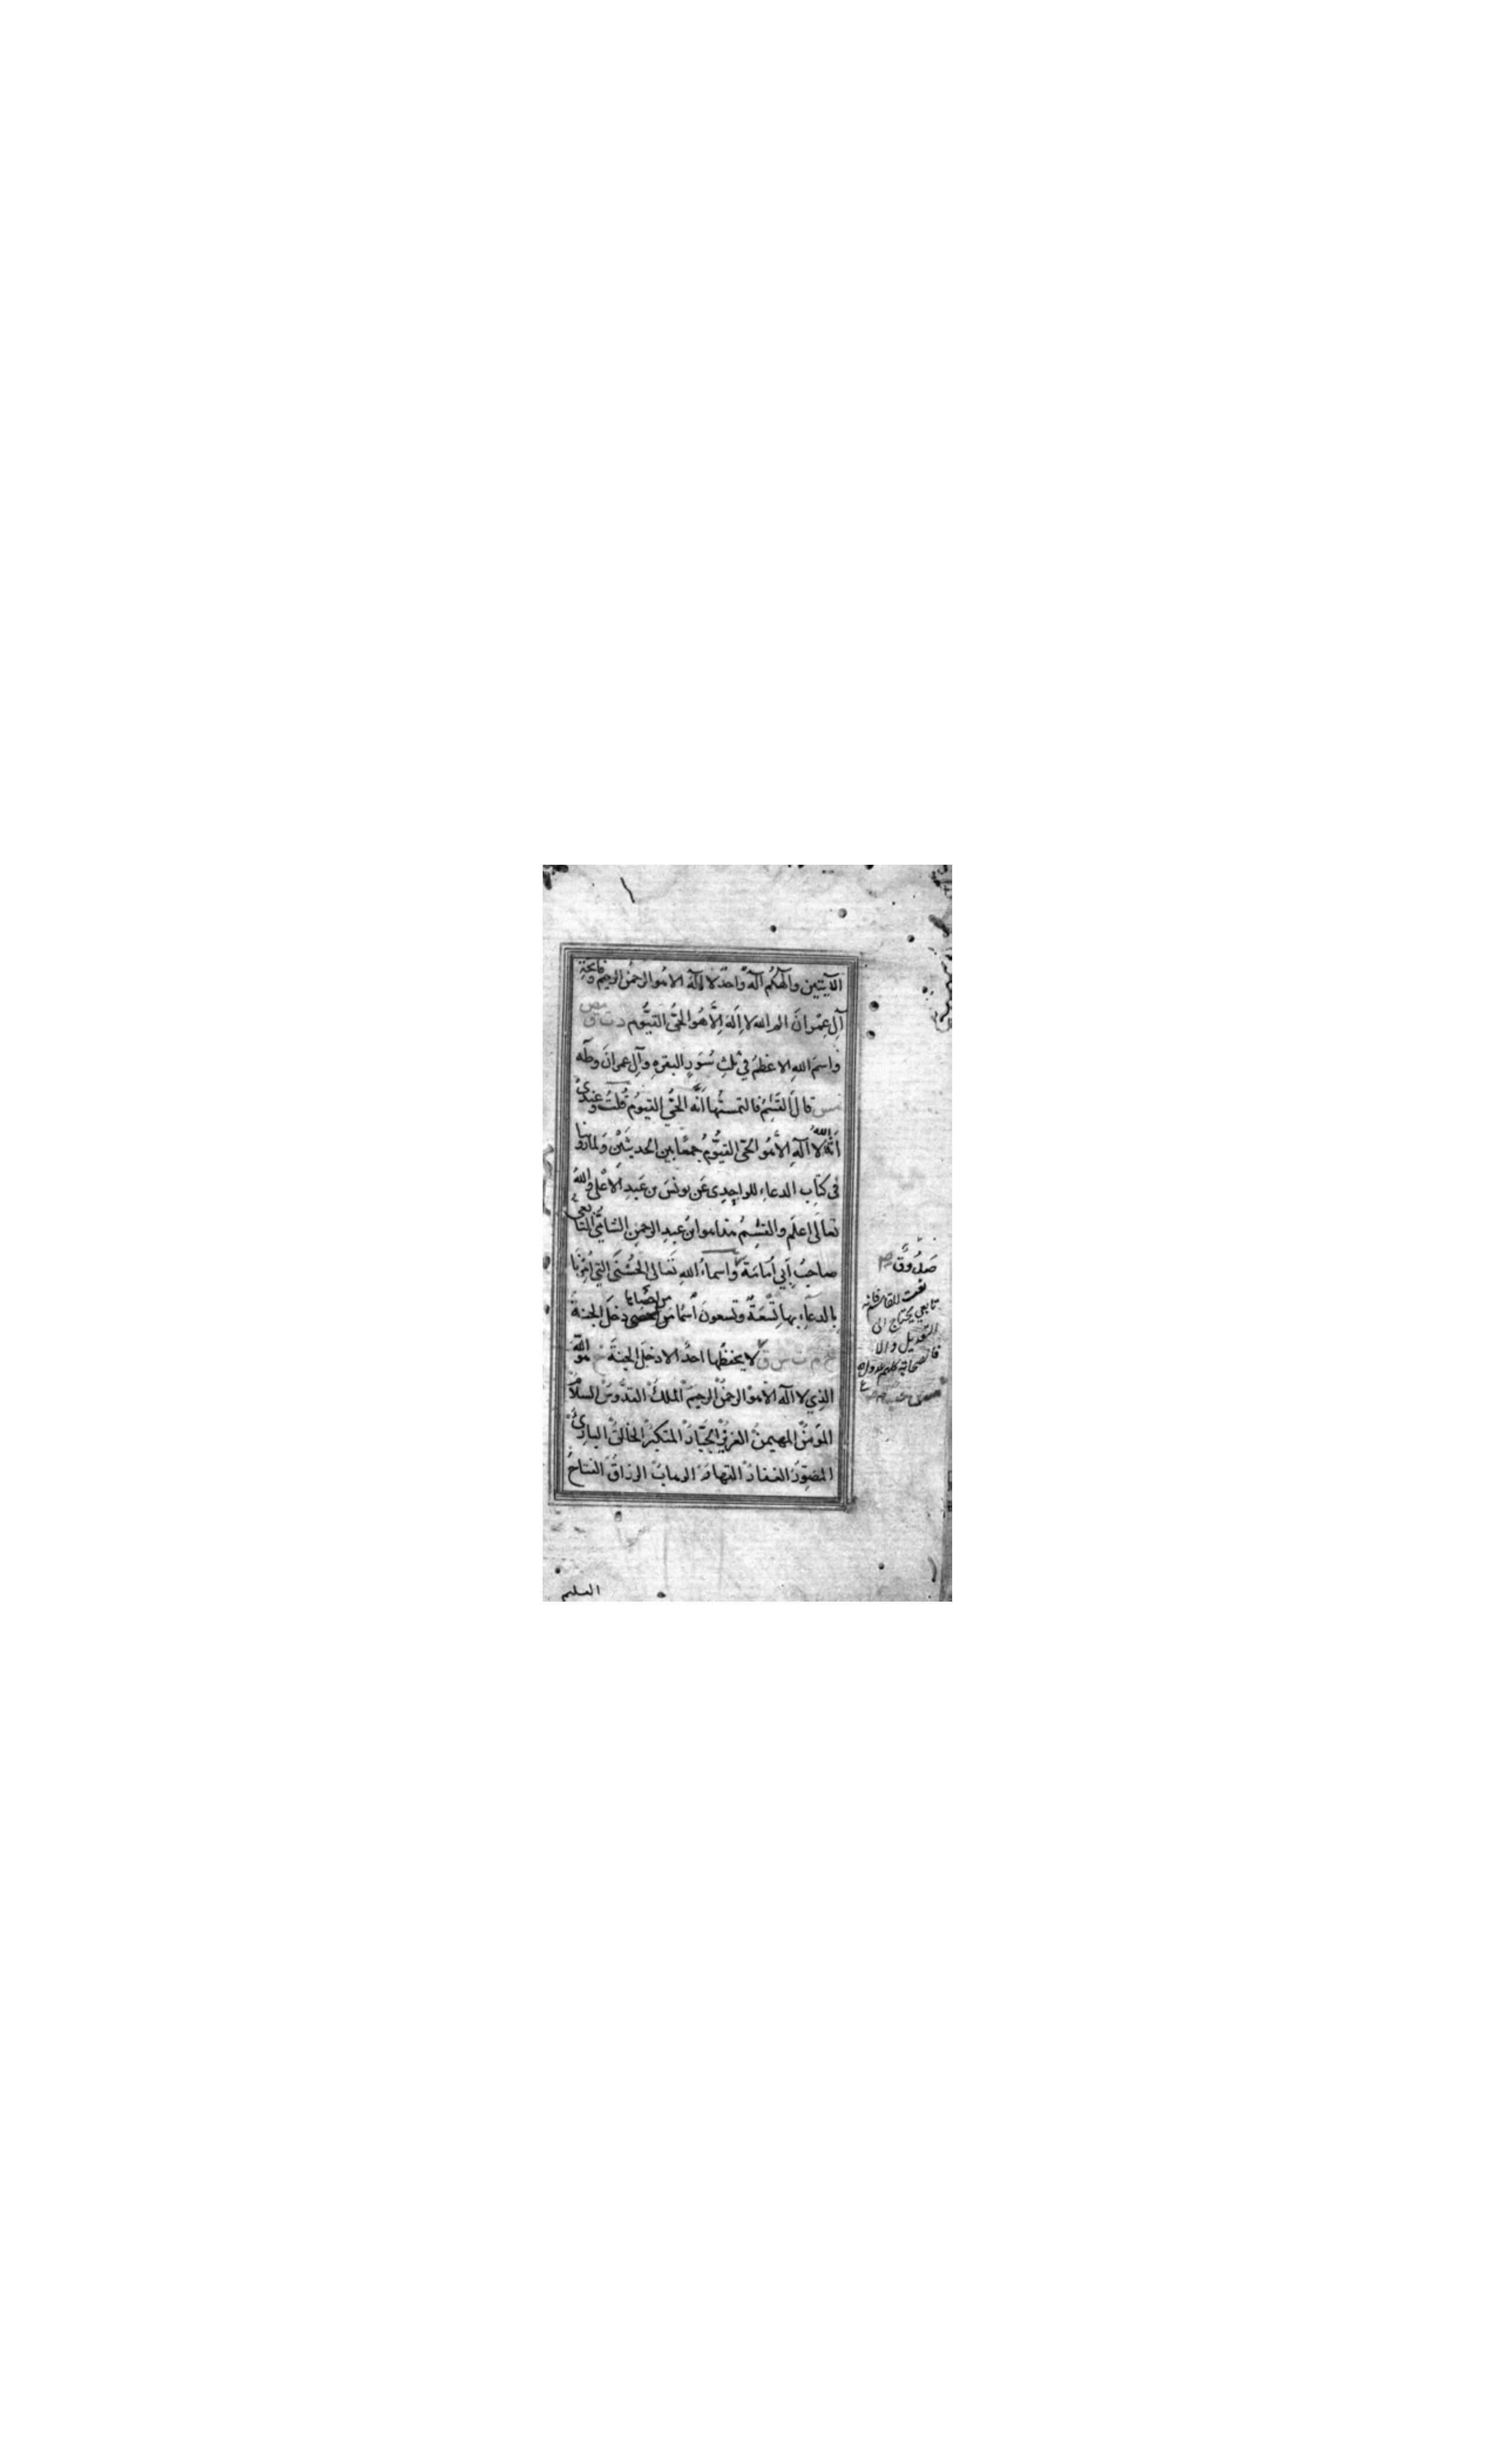 الآيتين وآلهكم اله واحد لا اله الا هو الرحمن الرحيم وفاتحة
آلِ عِمْرانَ الم الله لا اِلَهَ اِلَّا هُوَ الحَيُّ القيُّوم د ت ق مص
واسمُ اللهِ الاعظمُ في ثلثِ سُوَرٍ البقرةِ وآلِ عمرانَ وطه
مس قالَ القسِمُ فالتمستُها اَنَّه الحَيُّ القيومُ قُلتُ وعندي
اَنَّه الله لا اله الا هُوَ الحَىُّ القيُّومُ جمعًا بين الحديثَيْن ولما روينا
فى كتابِ الدعاءِ للواحِدِى عَن يونسَ بن عَبدِ الاَعْلى والله
تعالى اعلم والقسِمُ هذا هو ابنُ عبدِ الرحمنِ الشاميُّ التابعي
صاحبُ اَبي اُمَامَةَ واسماءُ اللهِ تَعالى الحُسْنَى التي اُمِرْنا
بالدعاءِ بها تِسْعَةٌ وتسعونَ اسْمًا من احصاها دخلَ الجنةَ
خ م ت س ق لا يحفظُها احدٌ الا دخلَ الجنةَ خ هو الله
الذي لا اله الا هو الرحمنُ الرحيمُ الملكُ القدُّوسُ السلامُ
المؤمنُ المهيمنُ العزيزُ الجبّارُ المتكبرُ الخالقُ البارئُ
المصوِّرُ الغفارُ القهارُ الوهابُ الرزاقُ الفتاحُ
صَدُوقٌ
نعت للقاسم فانه
تابعي يحتاج الى
التعديل والا
فالصحابة كلهم عدول
العليم